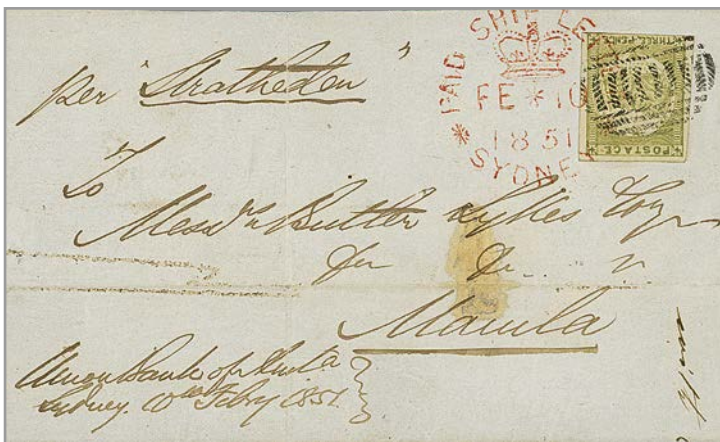 per "Stratheden"
PAID SHIP LE
FE * 10
1851
* SYDNEY
THREE PENCE
POSTAGE
To
Mess.rs Butler Sykes &Co
Manila
Union Bank of Austa
Sydney 10th Febry 1851